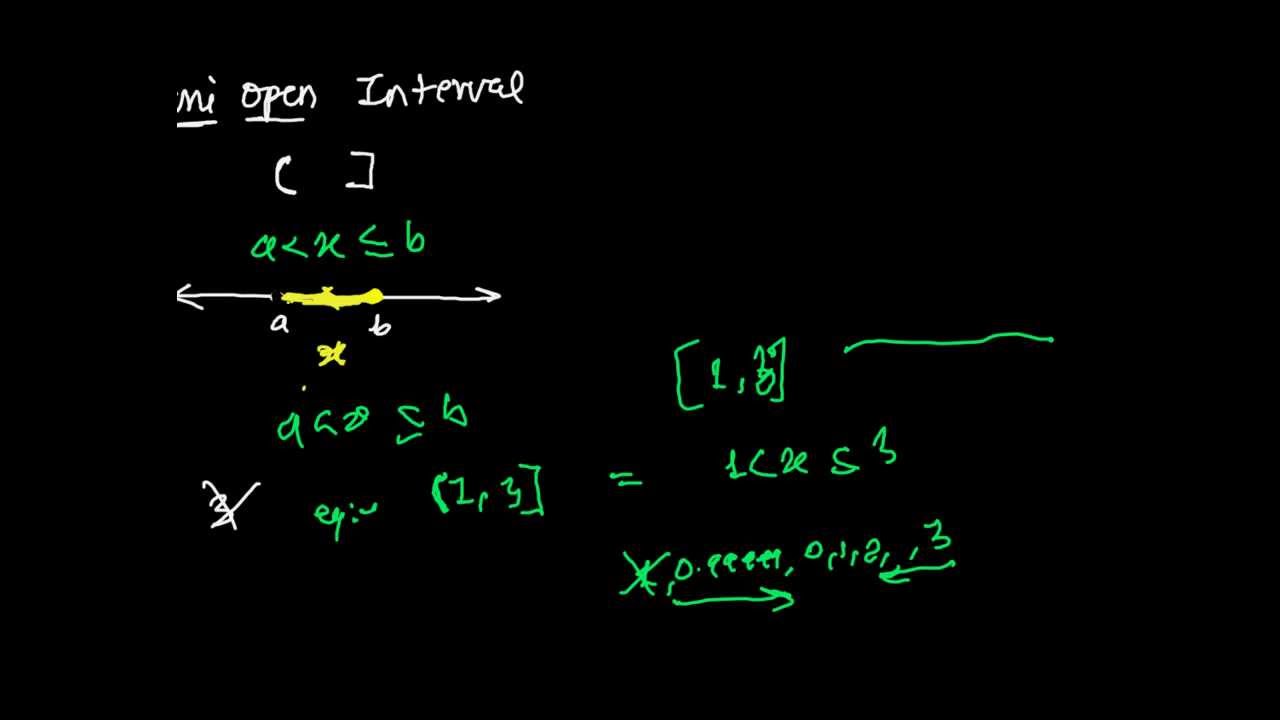 mi open Interval
( ]
a < x ≤ b
a b
x
[1, ]
a < x ≤ b
1 < x ≤ 3
(1, 3] =
, 0.99999, 0, 1, 2, , 3